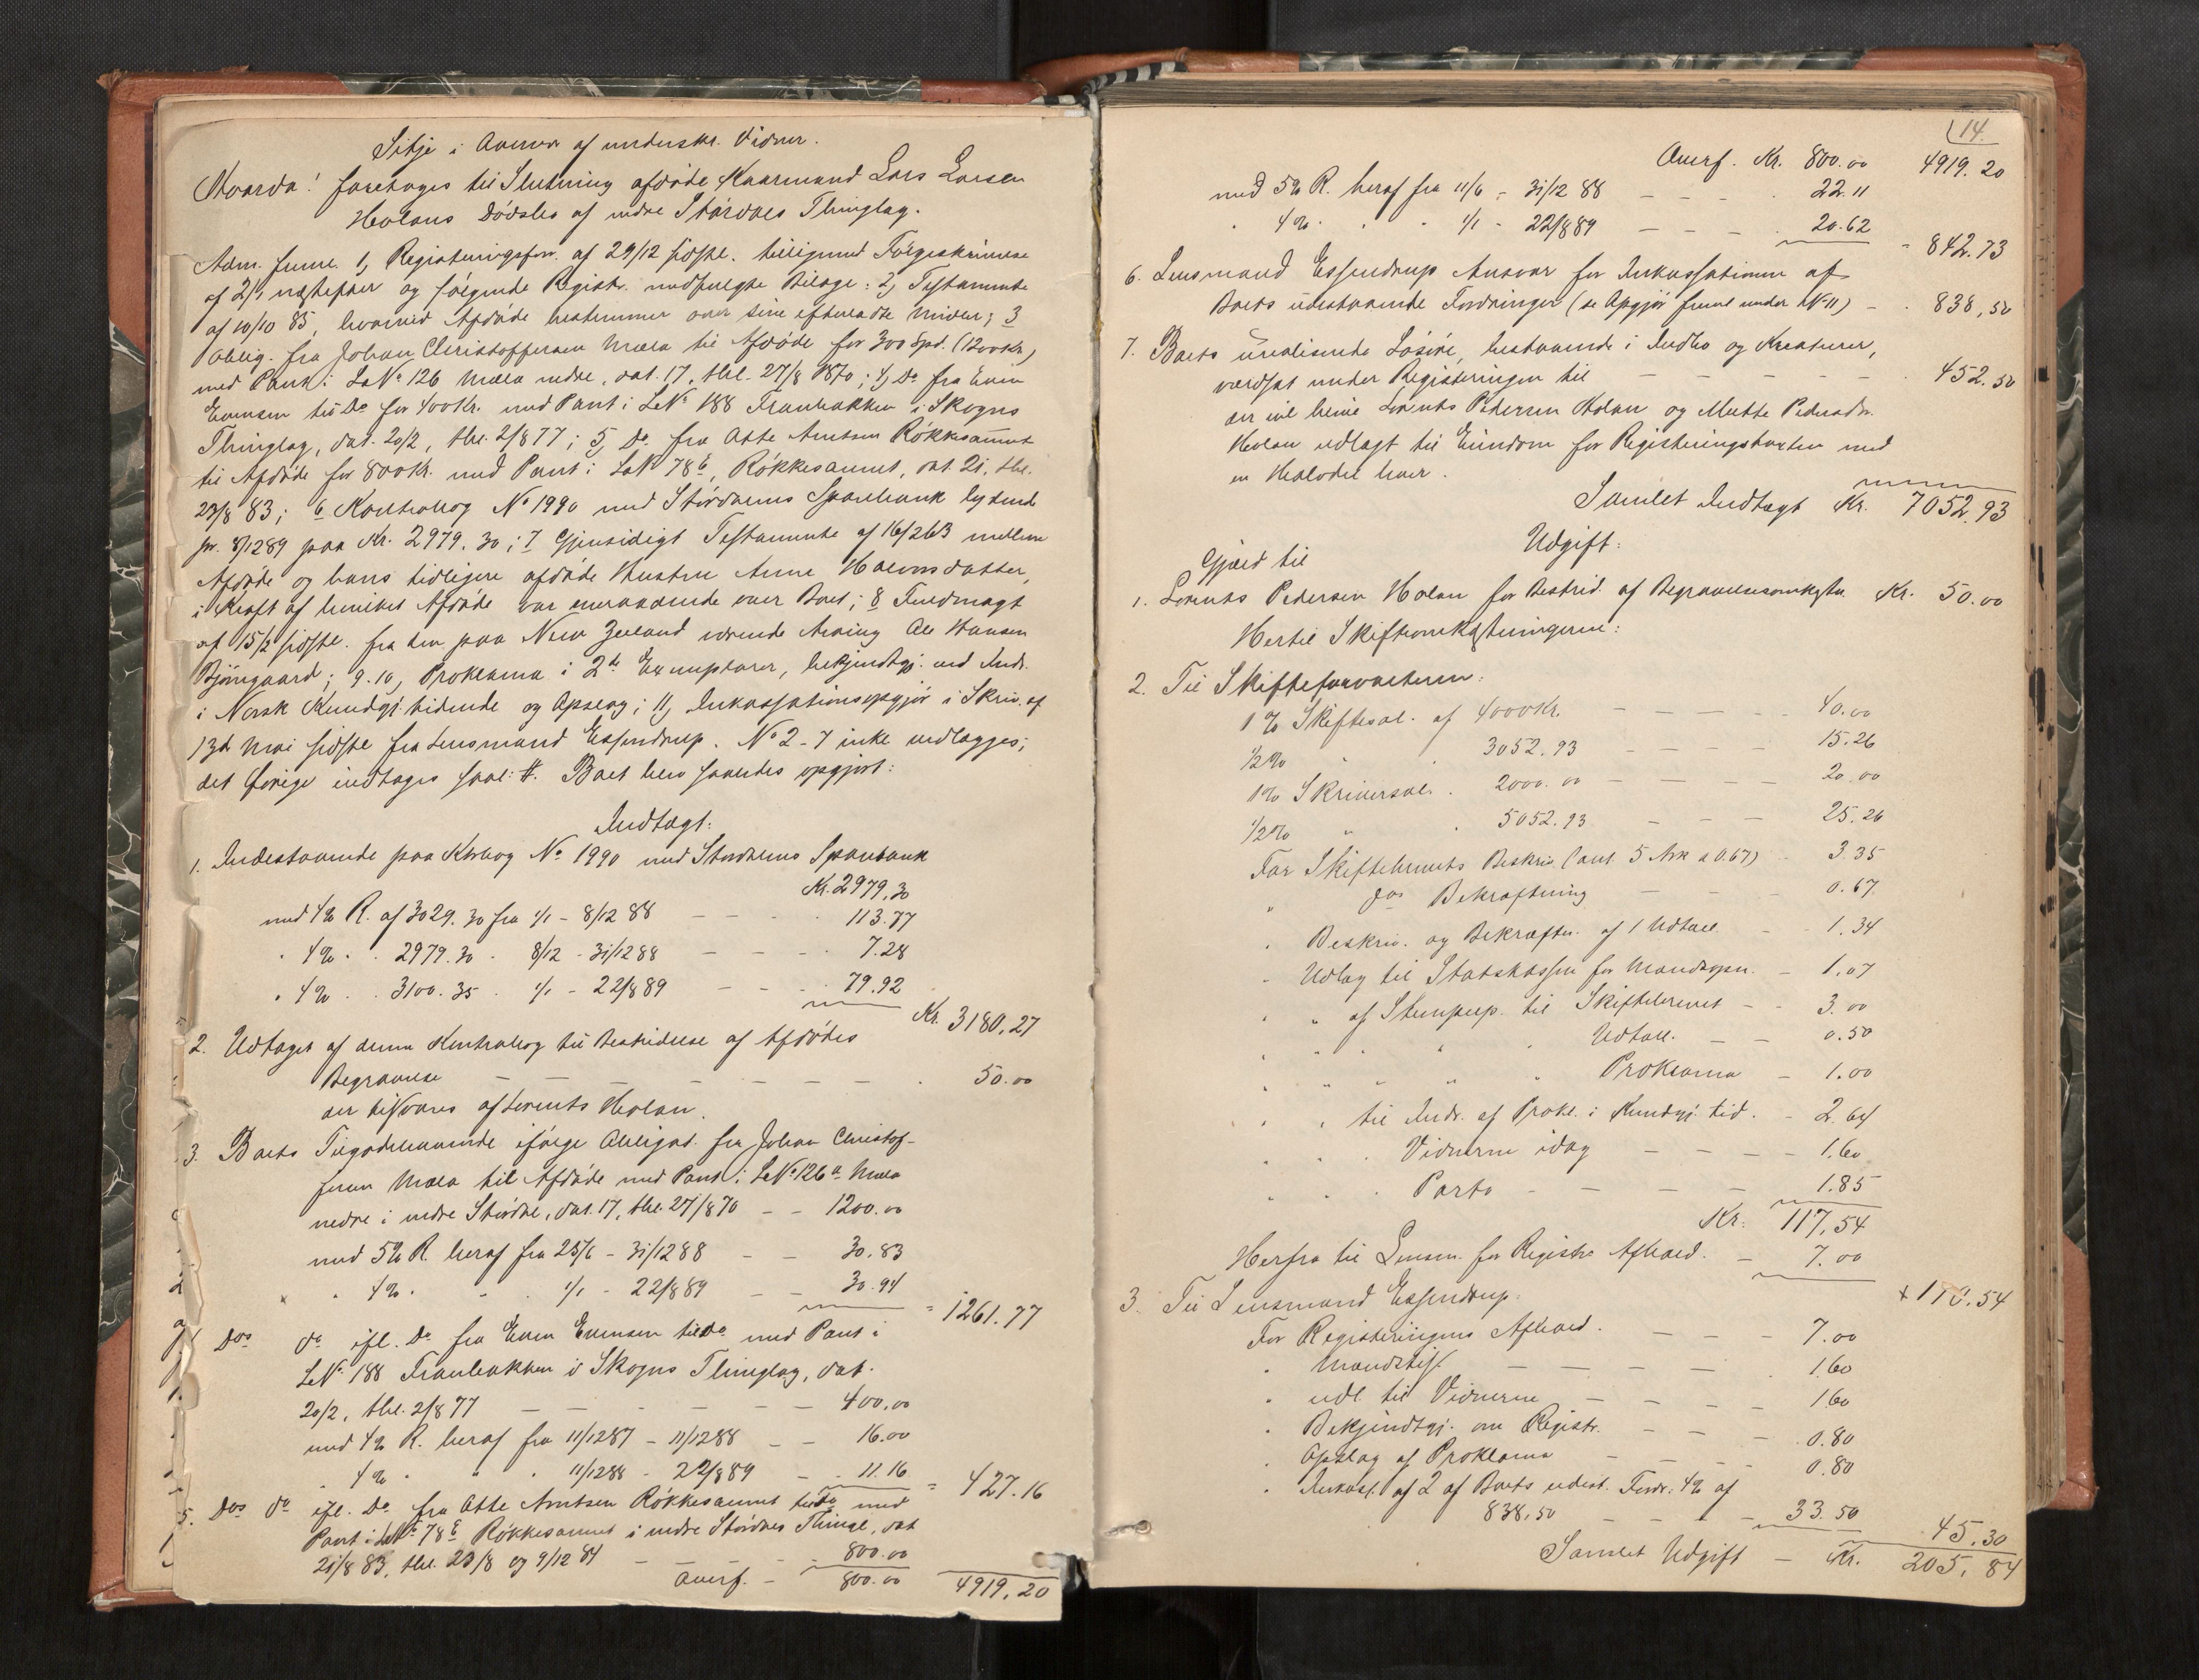 Sitje i Overvær af underskr. Vidner.
Hvorda! foretoges til Slutning afdøde Kaarmand Lars Larsen
Holans Dødsbo af nedre Stjørdals Thinglag.
Adm. freml. 1, Registreringsforr. af 29/12 sidstl. tilligemed Følgeskrivelse
af 2/1 næstefter og følgende Registr. medfulgte Bilage: 2, Testamente
af 10/10 85, hvorved Afdøde bestemmer over sine efterladte Midler; 3
Oblig. fra Johan Christoffersen Mæla til Afdøde for 300 Spd. (1200 Kr.)
med Pant i LNo 126 Mæla nedre, dat. 17, thl. 27/8 1870; 4, Do fra Even
Evensen til Do for 400 Kr. med Pant i LNo 188 Tranbakken i Skogns
Thinglag, dat. 20/2, thl. 2/8 77; 5, Do fra Otte Arntsen Røkkesaunet
til Afdøde for 800 Kr. med Pant i LNo 78 b, Røkkesaunet, dat. 21, thl.
23/8 83; 6 Kontrabog No 1990 med Stjørdalens Sparebank lydende
pr. 8/1289 paa Kr. 2979.30; 7 Gjensidigt Testamente af 16/263 mellem
Afdøde og hans tidligere afdøde Hustru Anne Halvorsdatter,
i Kraft af hvilket Afdøde var eneraadende over Boet; 8 Fuldmagt
af 15/2 sidstl. fra den paa New Zeeland værende Arving Ole Hansen
Bjørngaard; 9.10, Proklama i 2de Exemplarer, bekjendtgj. ved Indr.
i Norsk Kundgj.tidende og Opslag; 11, Inkassationsopgjør i Skriv. af
13de Mai sidstl. fra Lensmand Essendrup. No 2-7 inkl. vedlægges;
det øvrige indtages saal: #. Boet blev saaledes opgjort:
Indtægt:
1. Indestaaende paa Ktrbog No 1990 med Stjørdalens Sparebank
Kr. 2979.30
med 4% R. af 3029.30 fra 1/1 - 8/12 88 - - - 113.77
" 4% " 2979.30 " 8/12 - 31/1288 - - - 7.28
" 4% " 3100.35 " 1/1 - 22/889 - - - 79.92
Kr. 3180.27
2. Udtaget af denne Kontrabog til Bestridelse af Afdødes
Begravelse - - - - - - - 50.00
der tilsvares af Lorents Holan.
3. Boets Tilgodehavende ifølge Obligat. fra Johan Christof-
fersen Mæla til Afdøde med Pant i LNo 126 a Mæla
nedre i nedre Stjørdal, dat. 17, thl. 27/870 - - 1200.00
med 5% R. heraf fra 25/6 - 31/1288 - - 30.83
" 4% " " 1/1 - 22/889 - - 30.94
= 1261.77
4. Dos do ifl. Do fra Even Evensen til Do med Pant i
LNo 188 Tranbakken i Skogns Thinglag, dat.
20/2, thl. 2/877 - - - - - 400.00
med 4% R. heraf fra 11/1287 - 11/1288 - - 16.00
" 4% " " 11/1288 - 22/889 - 11.16
= 427.16
5. Dos do ifl. Do fra Otte Arntsen Røkkesaunet til Do med
Pant i LNo 78 b Røkkesaunet i nedre Stjørdals Thingl., dat
21/8 83, thl. 23/8 og 9/12 84 - - - 800.00
Overf. - 800.00 4919.20
14.
Overf. Kr. 800.00 4919.20
med 5% R. heraf fra 11/6 - 31/12 88 - - - 22.11
" 4% " " 1/1 - 22/889 - - - 20.62
" 842.73
6. Lensmand Essendrups Ansvar for Inkassationen af
Boets udestaaende Fordringer (se Opgjør freml under No 11) - 838,50
7. Boets urealiserede Løsøre, bestaaende i Indbo og Kreaturer,
værdsat under Registreringen til - - - - - 452.50
der vil blive Lorents Pedersen Holan og Mette Pedersdr.
Holan udlagt til Eiendom for Registreringstaxten med
en Halvdel hver.
Samlet Indtægt Kr. 7052.93
Udgift:
Gjæld til
1. Lorents Pedersen Holan for Bestrid. af Begravelsesomkostn. Kr. 50.00
Hertil Skifteomkostningerne:
2. Til Skifteforvalteren:
1% Skiftesal. af 4000 Kr. - - - - - 40.00
1/2% " " 3052.93 - - - - 15.26
1% Skriversal. " 2000.00 - - - - 20.00
1/2% " " 5052.93 - - - 25.26
For Skiftebrevets Beskriv. (ant. 5 Ark a 0.67) - 3.35
" ds Bekræftning - - - 0.67
" Beskriv. og Bekræftn. af 1 Udtael. - - 1.34
" Udlag til Statskassen for Mandtspen. - 1.07
" " af Stempelp. til Skiftebrevet - - 3.00
" " " " Udtael. - - 0.50
" " " " " Proklama - 1.00
" " " til Indr. af Prokl. i Kundgj. tid. - 2.64
" " " Vidnerne idag - - - - 1.60
" " " Porto - - - - 1.85
Kr. 117,54
Herfra til Lensm. for Registr. Afhold. - 7.00
+ 110.54
3. Til Lensmand Essendrup:
For Registreringens Afhold. - - - 7.00
" Mandtlist - - - - 1.60
" udl. til Vidnerne - - - - 1.60
" Bekjendtgj. om Registr. - - - 0.80
" Opslag af Proklama - - - 0.80
" Inkass. af 2 af Boets udest. Fordr. 4% af
838,50 - - - - 33.50
45.30
Samlet Udgift - Kr. 205,84